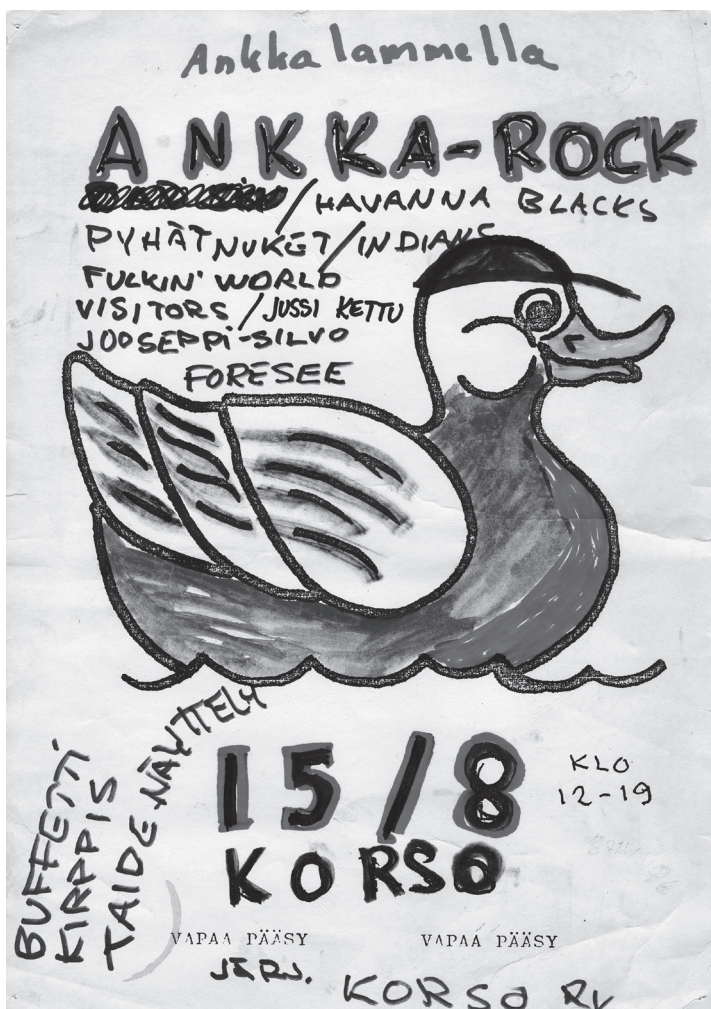 Ankkalammella
ANKKA-ROCK
/HAVANNA BLACKS
PYHÄT NUKET/INDIANS
FUCKIN' WORLD
VISITORS /JUSSI KETTU
JOOSEPPI-SILVO
FORESEE
BUFFETTI
KIRPPIS
TAIDENÄYTTELY
15/8
KLO
12-19
KORSO
VAPAA PÄÄSY VAPAA PÄÄSY
JÄRJ. KORSO RY